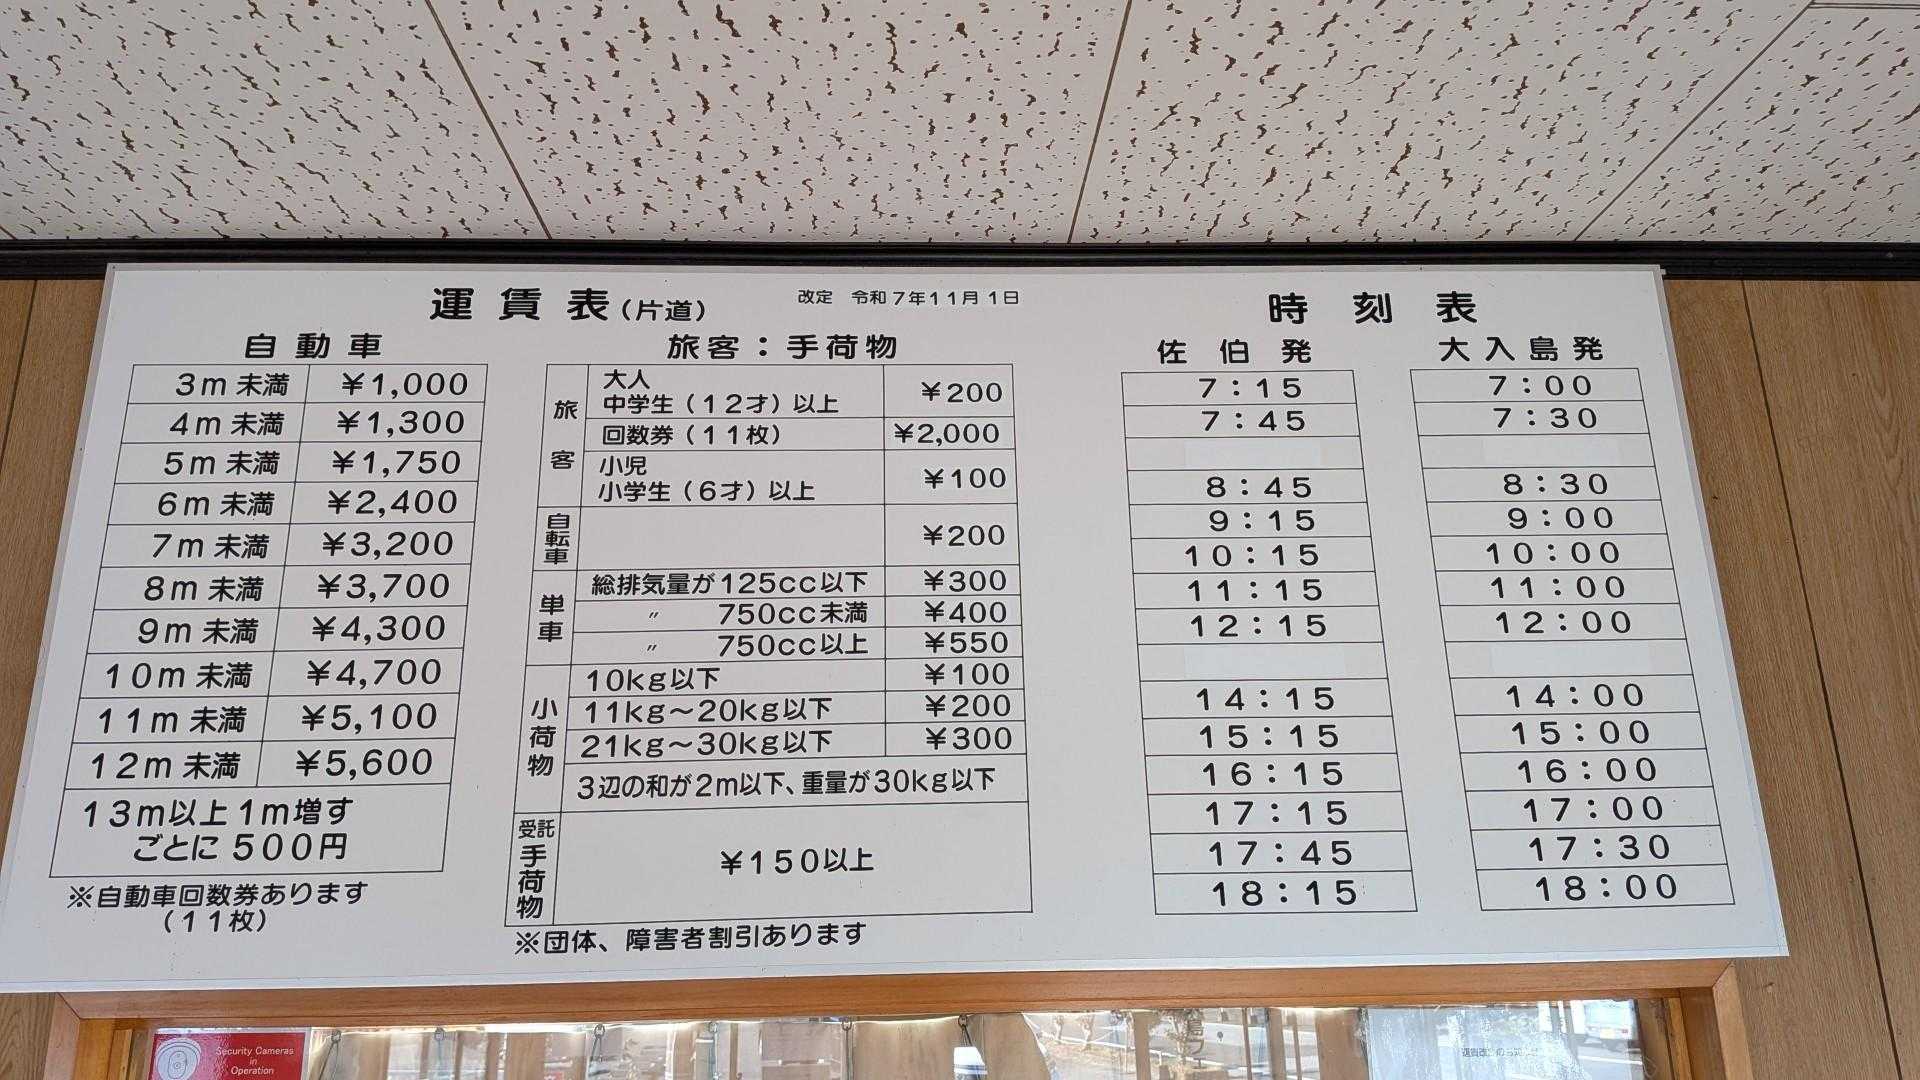 運賃表(片道) 改定 令和7年11月1日
自動車
3m未満 ¥1,000
4m未満 ¥1,300
5m未満 ¥1,750
6m未満 ¥2,400
7m未満 ¥3,200
8m未満 ¥3,700
9m未満 ¥4,300
10m未満 ¥4,700
11m未満 ¥5,100
12m未満 ¥5,600
13m以上1m増す
ごとに500円
※自動車回数券あります
(11枚)
旅客:手荷物
旅客
大人
中学生(12才)以上 ¥200
回数券(11枚) ¥2,000
小児
小学生(6才)以上 ¥100
自転車 ¥200
単車
総排気量が125cc以下 ¥300
〃 750cc未満 ¥400
〃 750cc以上 ¥550
小荷物
10kg以下 ¥100
11kg~20kg以下 ¥200
21kg~30kg以下 ¥300
3辺の和が2m以下、重量が30kg以下
受託手荷物 ¥150以上
※団体、障害者割引あります
時刻表
佐伯発
7:15
7:45
8:45
9:15
10:15
11:15
12:15
14:15
15:15
16:15
17:15
17:45
18:15
大入島発
7:00
7:30
8:30
9:00
10:00
11:00
12:00
14:00
15:00
16:00
17:00
17:30
18:00
Security Cameras
in
Operation